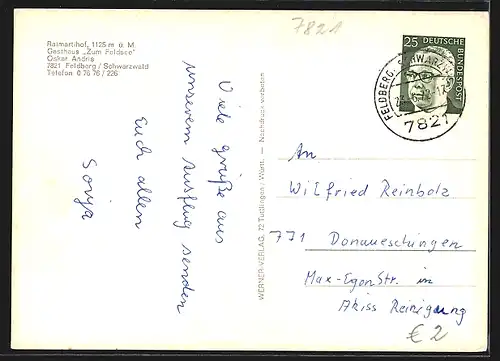 7821
Raimartihof, 1125 m ü. M.
Gasthaus „Zum Feldsee“
Oskar Andris
7821 Feldberg / Schwarzwald
Telefon 0 76 76 / 226
Viele grüße aus
unserem Ausflug senden
Euch allen
Sonja
WERNER-VERLAG, 72 Tuttlingen/Württ. — Nachdruck verboten
25 DEUTSCHE
BUNDESPOST
FELDBERG, SCHWARZW
7821
An
Wilfried Reinbolz
771 Donaueschingen
Max-Egon Str. in
Akiss Reinigung
€ 2